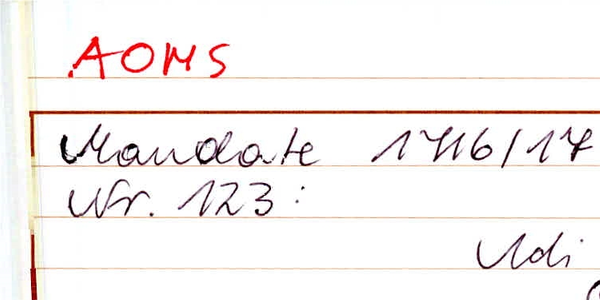 AOMS
Mandate 1716/17
Nr. 123: